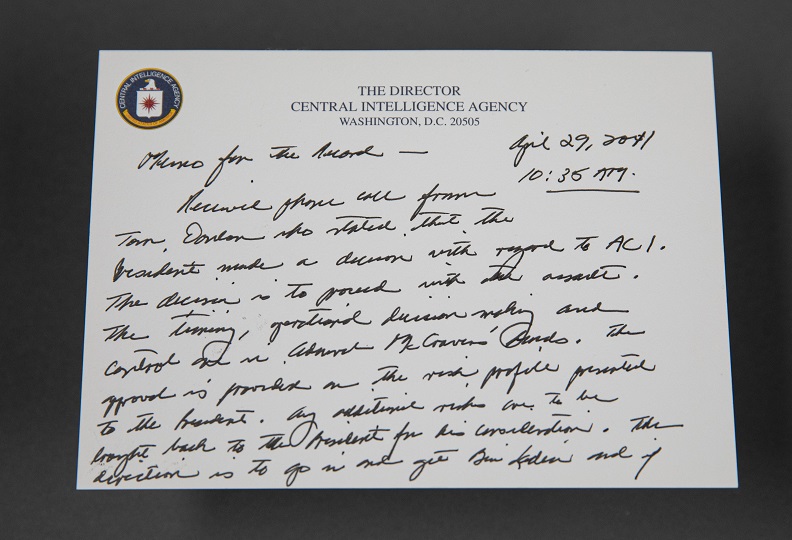 CENTRAL INTELLIGENCE AGENCY
THE DIRECTOR
CENTRAL INTELLIGENCE AGENCY
WASHINGTON, D.C. 20505
Memo for the Record —
April 29, 2011
10:35 AM.
Received phone call from
Tom Donilon who stated that the
President made a decision with regard to AC1.
The decision is to proceed with the assault.
The timing, operational decision making and
control are in Admiral McRaven's hands. The
approval is provided on the risk profile presented
to the President. Any additional risks are to be
brought back to the President for his consideration. The
direction is to go in and get Bin Laden and if